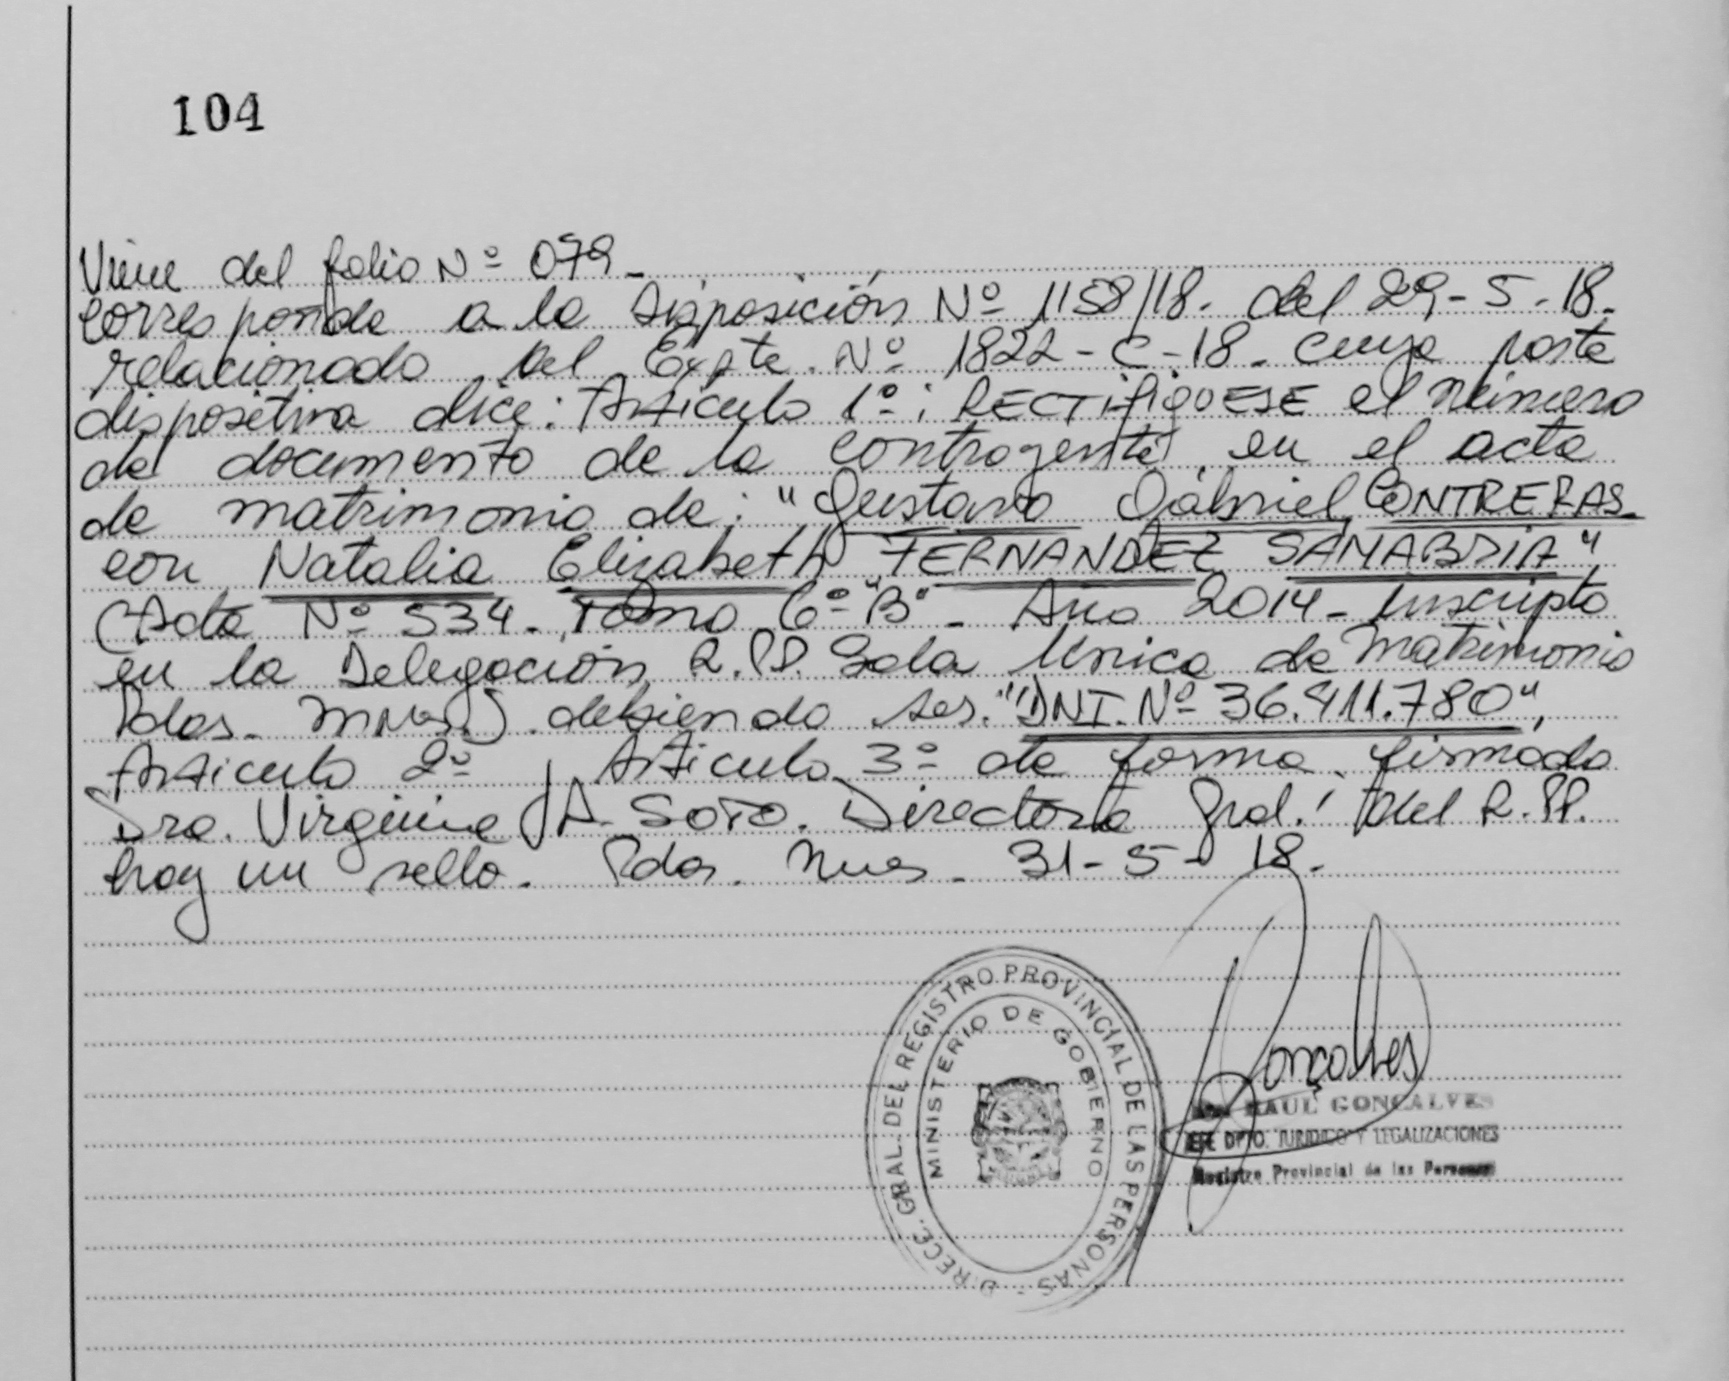 104
Viene del folio Nº 079-
corresponde a la Disposición Nº 1158/18. del 29-5-18.
relacionado del Expte. Nº 1822-C-18. cuya parte
dispositiva dice: Artículo 1º: RECTIFIQUESE el número
de documento de la contrayente, en el acta
de matrimonio de: "Gustavo Gabriel CONTRERAS
con Natalia Elizabeth FERNANDEZ SAMABRIA"
(Acta Nº 534. Tomo 6º "B" - Año 2014- Inscripto
en la Delegación R.PP. Sala Unica de Matrimonio
Pdas. Mnes) debiendo ser. "DNI. Nº 36.411.780",
Artículo 2º y Artículo 3º de forma. firmado
Dra. Virginia A. SOTO. Directora Gral. del R.PP.
hay un sello. Pdas. Mnes. 31-5-18.
DIRECC. GRAL. DEL REGISTRO PROVINCIAL DE LAS PERSONAS
MINISTERIO DE GOBIERNO
Gonçalves
RAUL GONCALVES
DPTO. JURIDICO Y LEGALIZACIONES
Registro Provincial de las Personas